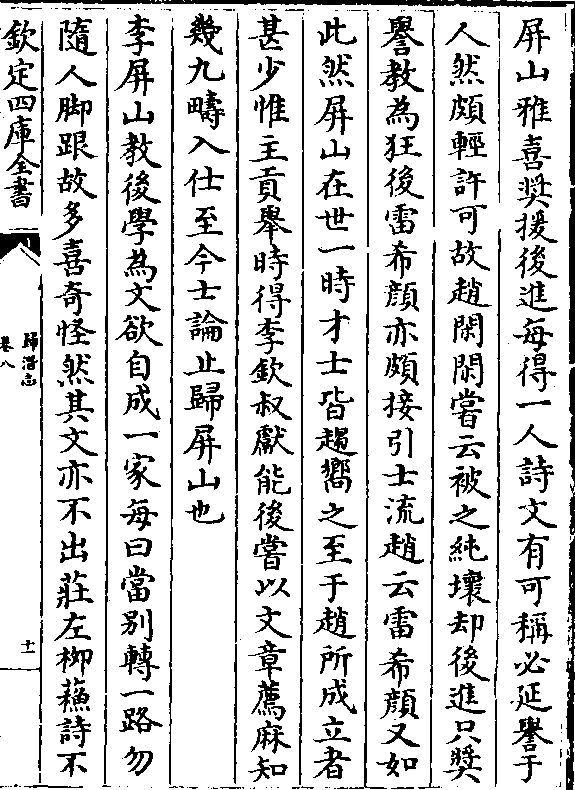 屏山雅喜奬援後進每得一人詩文有可稱必延譽于
人然頗輕許可故趙閑閑嘗云被之純壞却後進只奬
譽教為狂後雷希顔亦頗接引士流趙云雷希顔又如
此然屏山在世一時才士皆趨嚮之至于趙所成立者
甚少惟主貢舉時得李欽叔獻能後嘗以文章薦麻知
幾九疇入仕至今士論止歸屏山也
李屏山教後學為文欲自成一家每曰當别轉一路勿
隨人脚跟故多喜奇怪然其文亦不出莊左栁蘓詩不
欽定四庫全書
歸潛志
卷八
十一